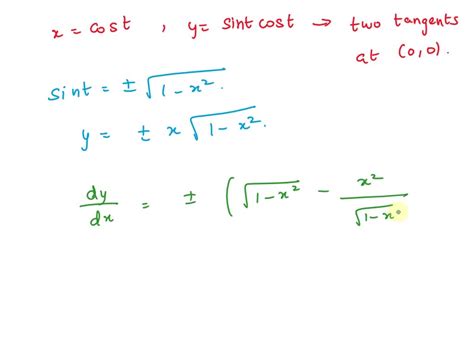 x = cost , y = sint cost → two tangents
at (0,0).
sint = ± √(1 - x²).
y = ± x √(1 - x²).
dy/dx = ± ( √(1 - x²) - x²/√(1 - x